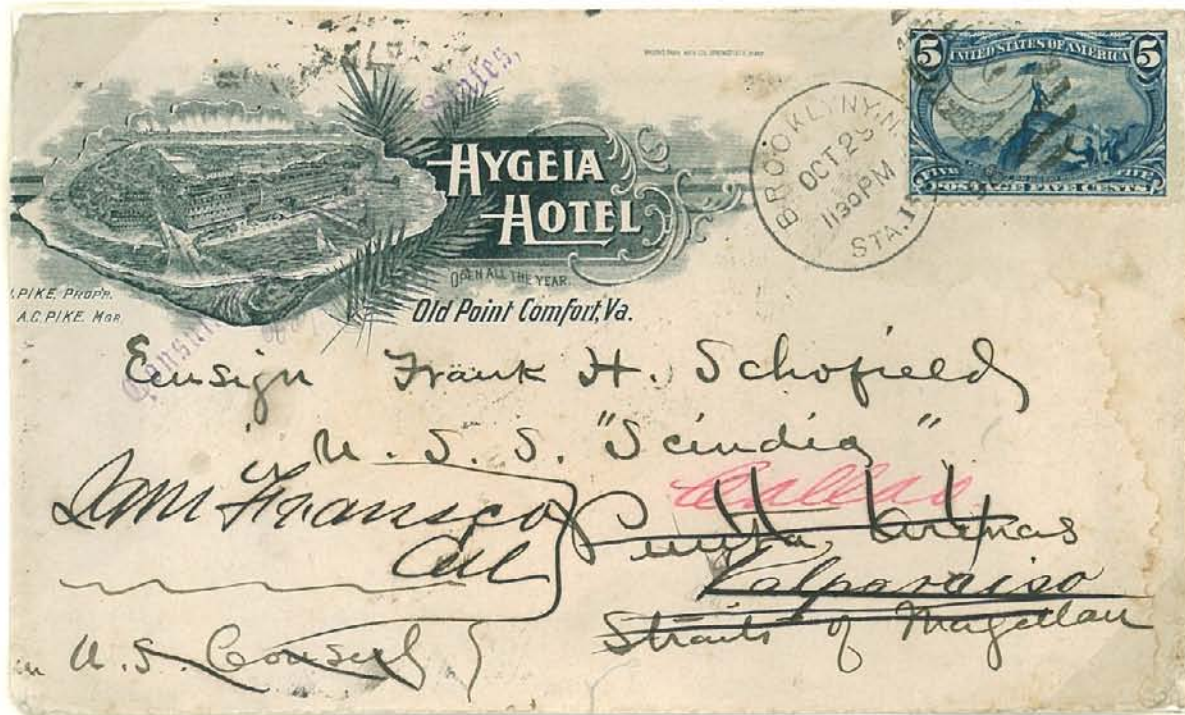 HYGEIA
HOTEL
OPEN ALL THE YEAR.
Old Point Comfort, Va.
PIKE, PROP'R.
A.C. PIKE, MGR.
BROOKLYN, N.
OCT 29
11 30 PM
STA.
5 UNITED STATES OF AMERICA 5
FIVE FIVE
POSTAGE FIVE CENTS
States,
Ensign Frank H. Schofield
U. S. S. "Scindia"
Callao
San Fransico
Cal
Punta Arenas
Valparaiso
Straits of Magellan
U. S. Consul